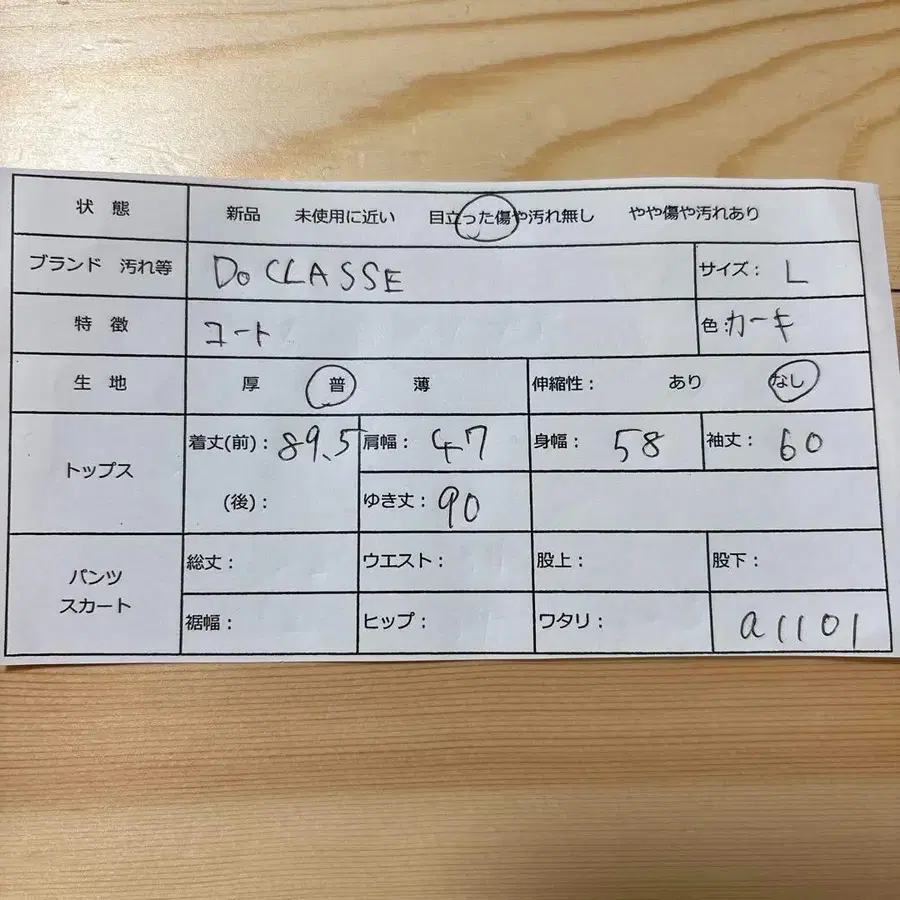 状 態 新品 未使用に近い 目立った傷や汚れ無し やや傷や汚れあり
ブランド 汚れ等 DoCLASSE サイズ: L
特 徴 コート 色:カーキ
生 地 厚 普 薄 伸縮性: あり なし
トップス 着丈(前): 89.5 肩幅: 47 身幅: 58 袖丈: 60
(後): ゆき丈: 90
パンツ スカート 総丈: ウエスト: 股上: 股下:
裾幅: ヒップ: ワタリ: a1101